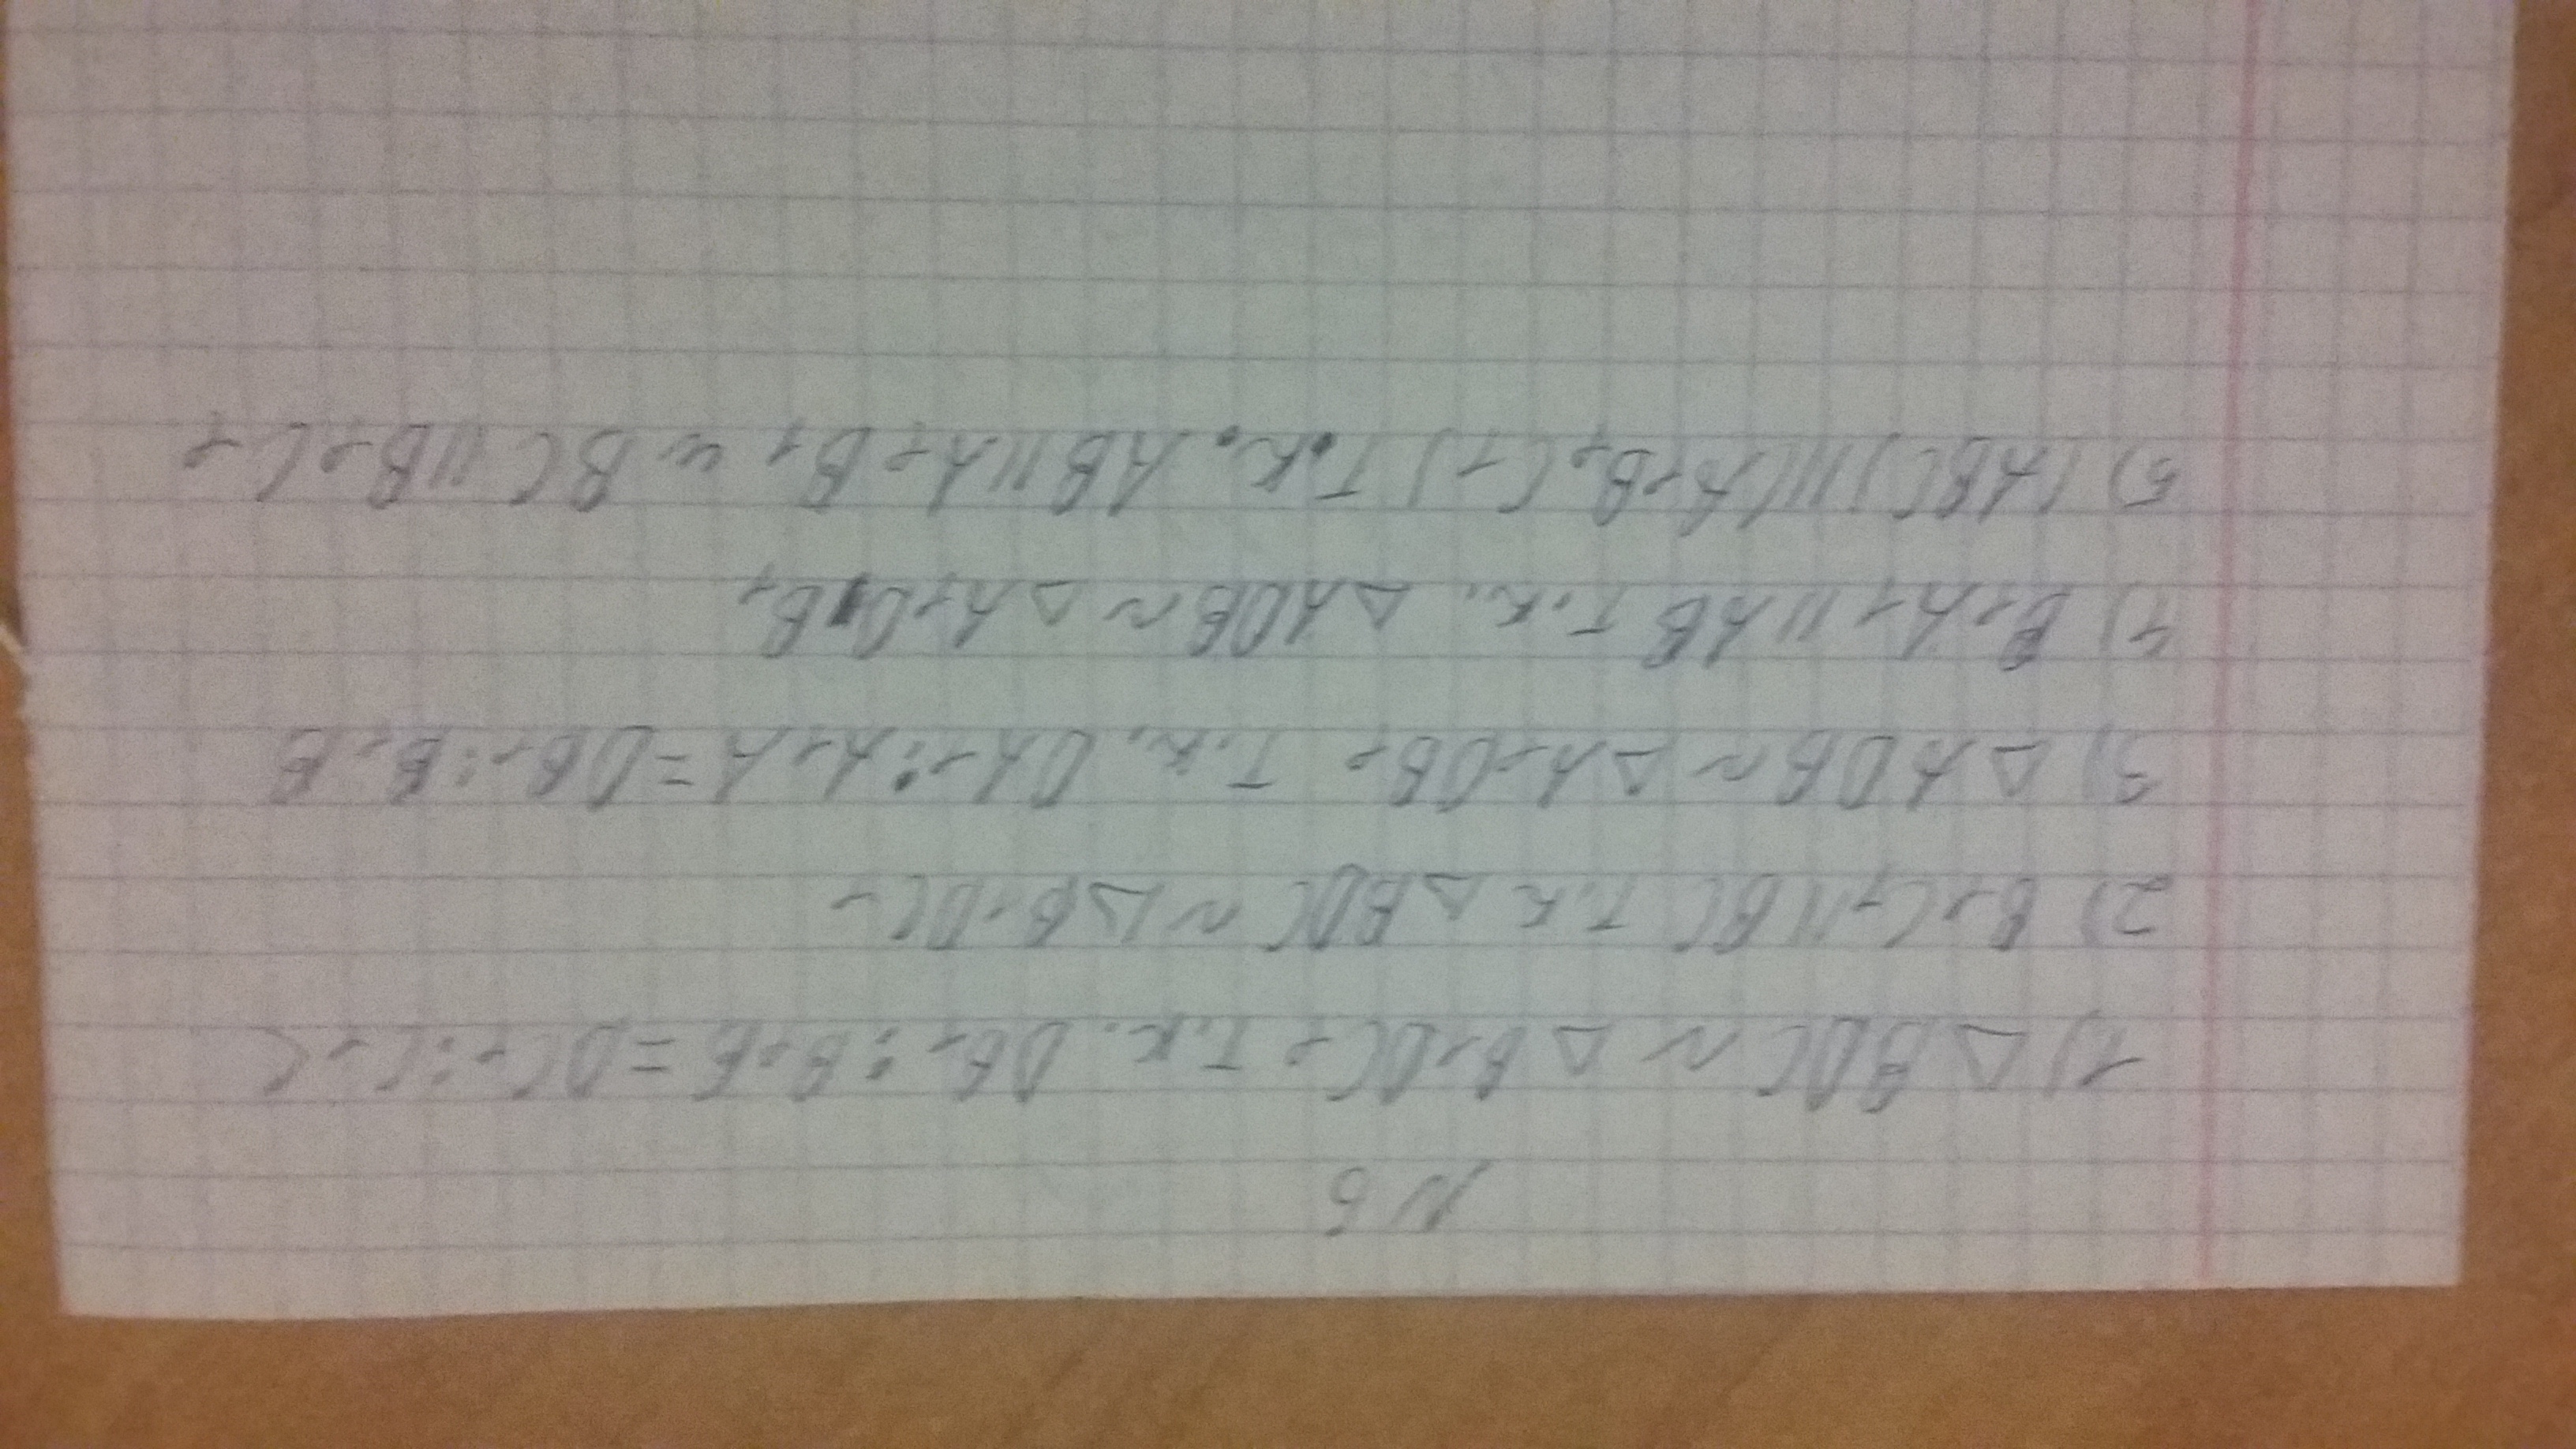 N6
1) △BDC ~ △B₁DC₁ т.к. DB₁:B₁B=DC₁:C₁C
2) B₁C₁ || BC т.к △BDC ~ △B₁DC₁
3) △ADB ~ △A₁DB₁ т.к. DA₁:A₁A=DB₁:B₁B
4) B₁A₁ || AB т.к. △ADB ~ △A₁DB₁
5) (ABC) || (A₁B₁C₁) т.к. AB || A₁B₁ и BC || B₁C₁